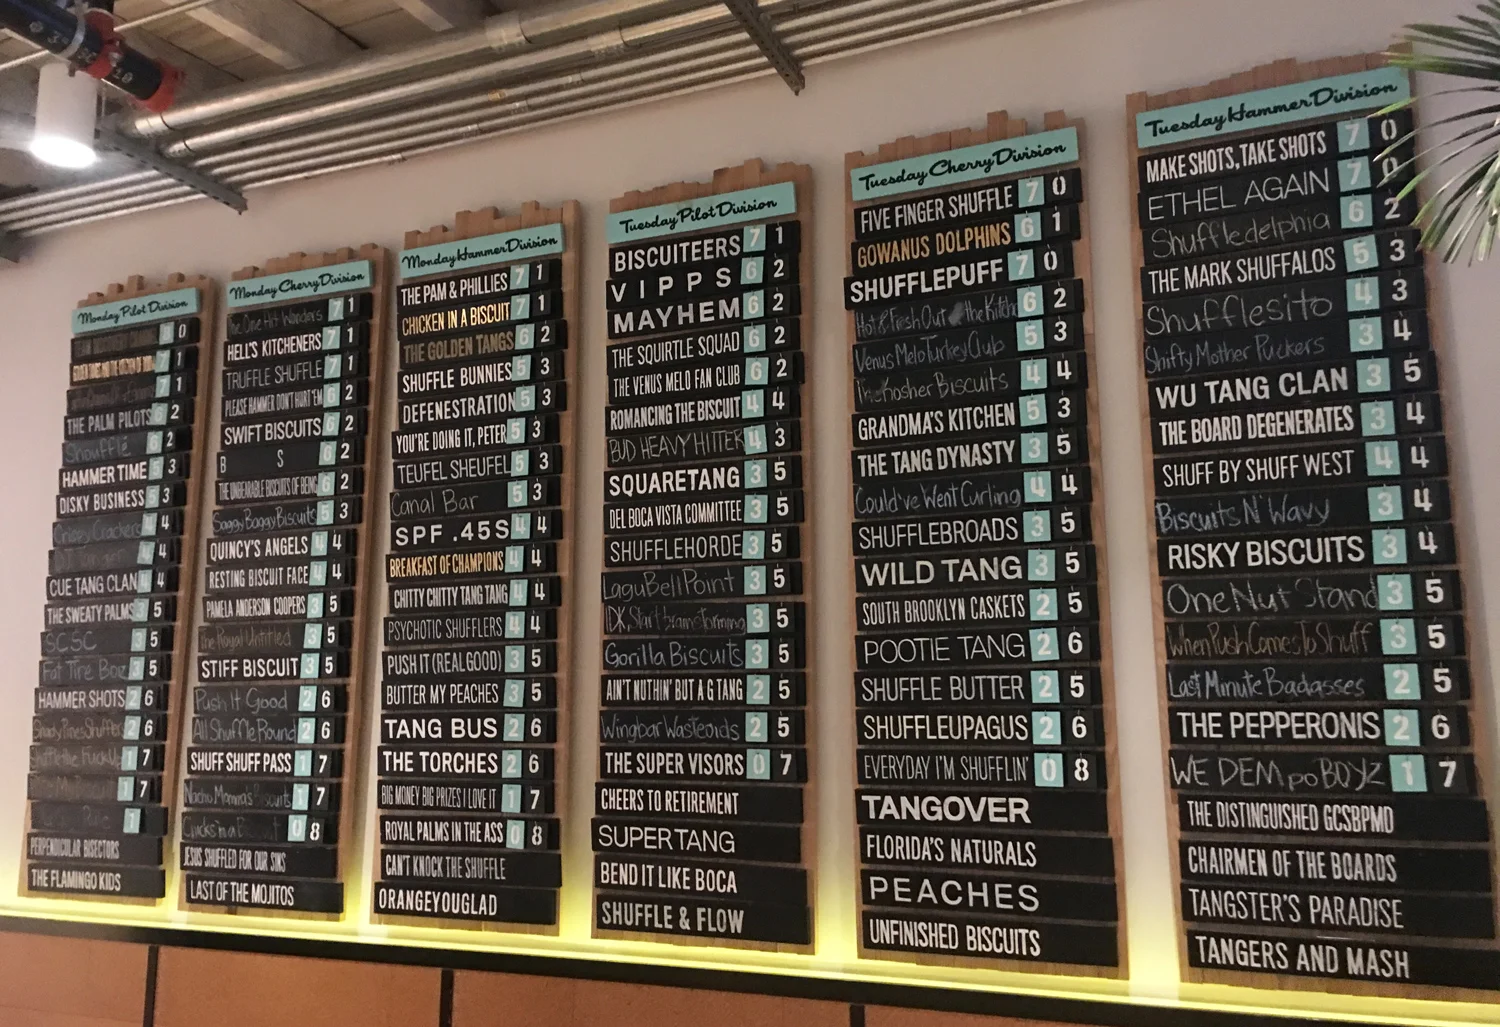 Monday Pilot Division
0
7 1
7 1
THE PALM PILOTS 6 2
Shouffle 6 2
HAMMER TIME 5 3
DISKY BUSINESS 5 3
Crispy Crackers 4 4
4 4
CUE TANG CLAN 4 4
THE SWEATY PALMS 3 5
SCSC 3 5
Fat Tire Boiz 3 5
HAMMER SHOTS 2 6
Shady Pines Shufflers 2 6
1 7
1 7
1
PERPENDICULAR BISECTORS
THE FLAMINGO KIDS
Monday Cherry Division
The One Hit Wonders 7 1
HELL'S KITCHENERS 7 1
TRUFFLE SHUFFLE 7 1
PLEASE HAMMER DON'T HURT 'EM 6 2
SWIFT BISCUITS 6 2
B S 6 2
THE UNBEARABLE BISCUITS OF BEING 6 2
Saggy Baggy Biscuits 5 3
QUINCY'S ANGELS 4 4
RESTING BISCUIT FACE 4 4
PAMELA ANDERSON COOPERS 3 5
The Royal Untitled 3 5
STIFF BISCUIT 3 5
Push It Good 2 6
All Shuffle Round 2 6
SHUFF SHUFF PASS 1 7
Nacho Momma's Biscuits 1 7
0 8
JESUS SHUFFLED FOR OUR SINS
LAST OF THE MOJITOS
Monday Hammer Division
THE PAM & PHILLIES 7 1
CHICKEN IN A BISCUIT 7 1
THE GOLDEN TANGS 6 2
SHUFFLE BUNNIES 5 3
DEFENESTRATION 5 3
YOU'RE DOING IT, PETER 5 3
TEUFEL SHEUFEL 5 3
Canal Bar 5 3
SPF .45S 4 4
BREAKFAST OF CHAMPIONS 4 4
CHITTY CHITTY TANG TANG 4 4
PSYCHOTIC SHUFFLERS 4 4
PUSH IT (REAL GOOD) 3 5
BUTTER MY PEACHES 3 5
TANG BUS 2 6
THE TORCHES 2 6
BIG MONEY BIG PRIZES I LOVE IT 1 7
ROYAL PALMS IN THE ASS 0 8
CAN'T KNOCK THE SHUFFLE
ORANGEYOUGLAD
Tuesday Pilot Division
BISCUITEERS 7 1
VIPPS 6 2
MAYHEM 6 2
THE SQUIRTLE SQUAD 6 2
THE VENUS MELO FAN CLUB 6 2
ROMANCING THE BISCUIT 4 4
BUD HEAVY HITTER 4 3
SQUARETANG 3 5
DEL BOCA VISTA COMMITTEE 3 5
SHUFFLEHORDE 3 5
LaguBellPoint 3 5
IDK, Start brainstorming 3 5
Gorilla Biscuits 3 5
AIN'T NUTHIN' BUT A G TANG 2 5
Wingbar Wasteoids 2 5
THE SUPER VISORS 0 7
CHEERS TO RETIREMENT
SUPERTANG
BEND IT LIKE BOCA
SHUFFLE & FLOW
Tuesday Cherry Division
FIVE FINGER SHUFFLE 7 0
GOWANUS DOLPHINS 6 1
SHUFFLEPUFF 7 0
Hot & Fresh Out the Kitchen 6 2
Venus Melo Turkey Club 5 3
The Kosher Biscuits 4 4
GRANDMA'S KITCHEN 5 3
THE TANG DYNASTY 3 5
Could've Went Curling 4 4
SHUFFLEBROADS 3 5
WILD TANG 3 5
SOUTH BROOKLYN CASKETS 2 5
POOTIE TANG 2 6
SHUFFLE BUTTER 2 5
SHUFFLEUPAGUS 2 6
EVERYDAY I'M SHUFFLIN' 0 8
TANGOVER
FLORIDA'S NATURALS
PEACHES
UNFINISHED BISCUITS
Tuesday Hammer Division
MAKE SHOTS, TAKE SHOTS 7 0
ETHEL AGAIN 7 0
Shuffledelphia 6 2
THE MARK SHUFFALOS 5 3
Shufflesito 4 3
Shifty Mother Puckers 3 4
WU TANG CLAN 3 5
THE BOARD DEGENERATES 3 4
SHUFF BY SHUFF WEST 4 4
Biscuits N' Wavy 3 4
RISKY BISCUITS 3 4
One Nut Stand 3 5
When Push Comes To Shuff 3 5
Last Minute Badasses 2 5
THE PEPPERONIS 2 6
WE DEM po BOYZ 1 7
THE DISTINGUISHED GCSBPMD
CHAIRMEN OF THE BOARDS
TANGSTER'S PARADISE
TANGERS AND MASH